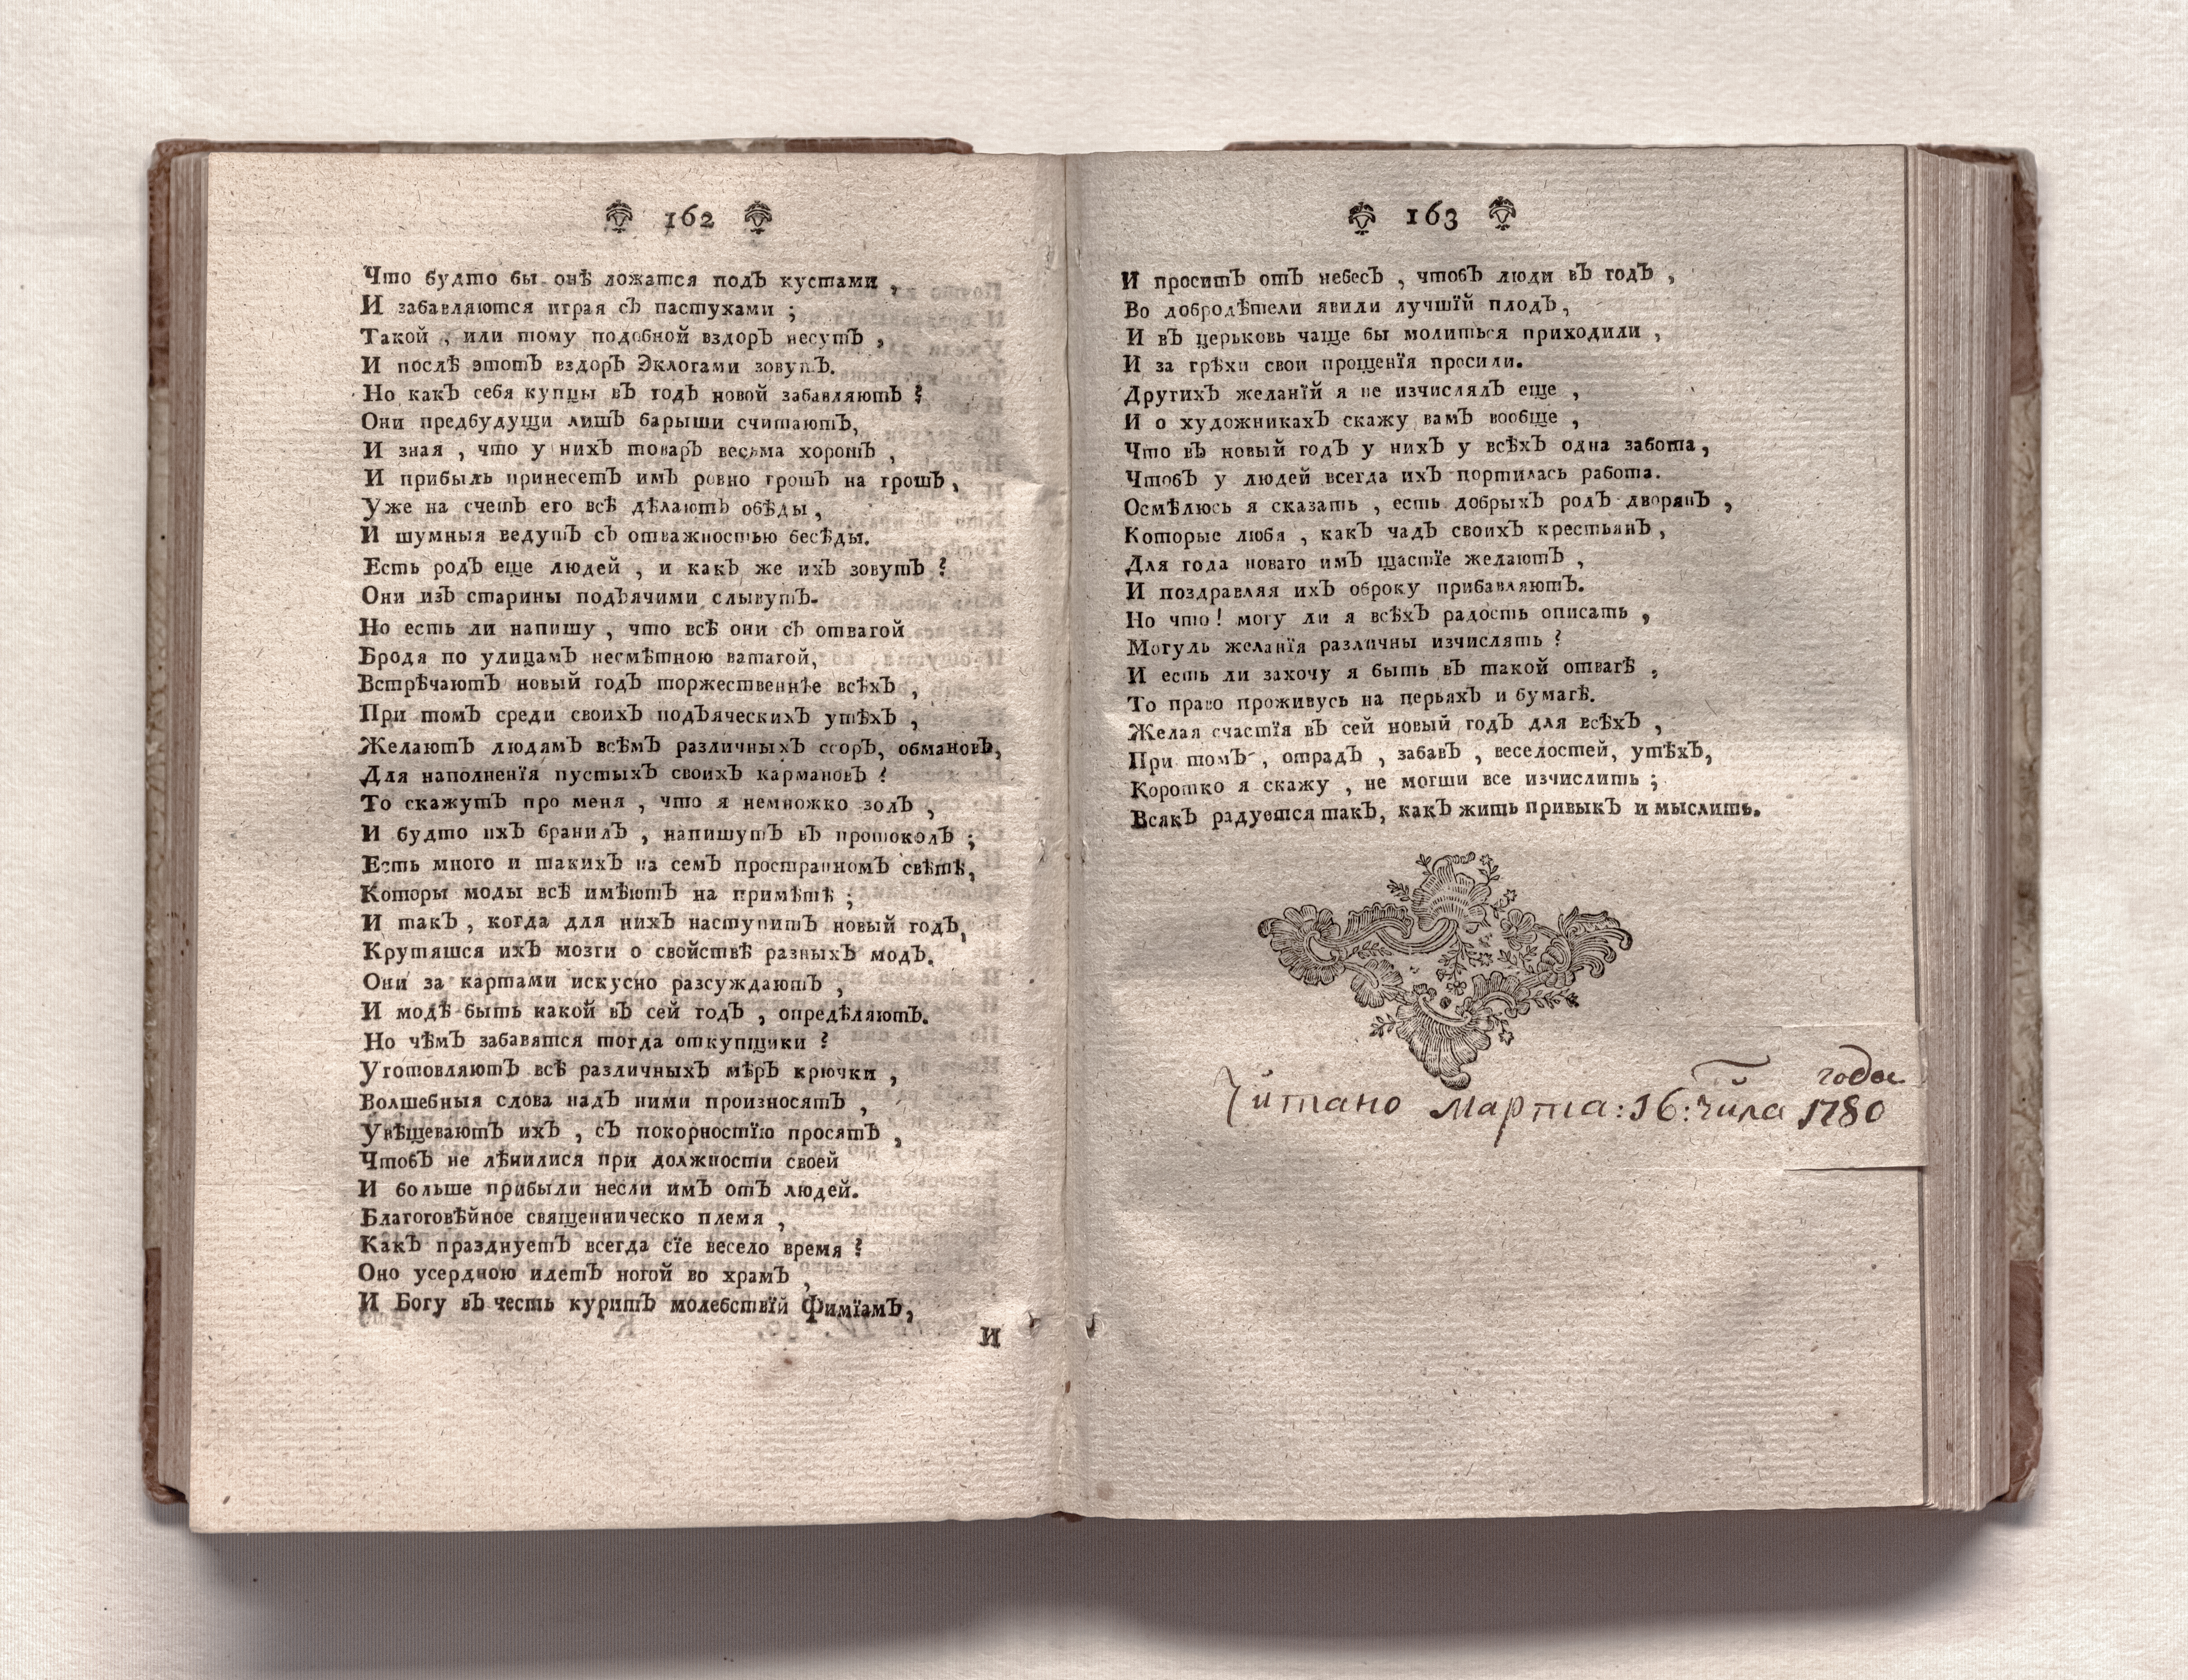 162
Что будто бы онѣ ложатся подЪ кустами ,
И забавляются играя сЪ пастухами ;
Такой , или тому подобной вздорЪ несутЪ ,
И послѣ этотЪ вздорЪ Эклогами зовутЪ.
Но какЪ себя купцы вЪ годЪ новой забавляютЪ ?
Они предбудущи лишЪ барыши считаютЪ,
И зная , что у нихЪ товарЪ весьма хорошЪ ,
И прибыль принесетЪ имЪ ровно грошЪ на грошЪ ,
Уже на счетЪ его всѣ дѣлаютЪ обѣды ,
И шумныя ведутЪ сЪ отважностью бесѣды.
Есть родЪ еще людей , и какЪ же ихЪ зовутЪ ?
Они изЪ старины подЪячими слывутЪ.
Но есть ли напишу , что всѣ они сЪ отвагой
Бродя по улицамЪ несмѣтною ватагой,
ВстрѣчаютЪ новый годЪ торжественнѣе всѣхЪ ,
При томЪ среди своихЪ подЪяческихЪ утѣхЪ ,
ЖелаютЪ людямЪ всѣмЪ различныхЪ ссорЪ, обмановЪ,
Для наполненїя пустыхЪ своихЪ кармановЪ ?
То скажутЪ про меня , что я немножко золЪ ,
И будто ихЪ бранилЪ , напишутЪ вЪ протоколЪ ;
Есть много и такихЪ на семЪ пространномЪ свѣтѣ,
Которы моды всѣ имѣютЪ на примѣтѣ ;
И такЪ , когда для нихЪ наступитЪ новый годЪ,
Крутяшся ихЪ мозги о свойствѣ разныхЪ модЪ.
Они за картами искусно разсуждаютЪ ,
И модѣ быть какой вЪ сей годЪ , опредѣляютЪ.
Но чѣмЪ забавятся тогда откупщики ?
УготовляютЪ всѣ различныхЪ мѣрЪ крючки ,
Волшебныя слова надЪ ними произносятЪ ,
УвѣщеваютЪ ихЪ , сЪ покорностїю просятЪ ,
ЧтобЪ не лѣнилися при должности своей
И больше прибыли несли имЪ отЪ людей.
Благоговѣйное священническо племя ,
КакЪ празднуетЪ всегда сїе весело время ?
Оно усердною идетЪ ногой во храмЪ ,
И Богу вЪ честь куритЪ молебствїй ѲимїамЪ,
И
163
И проситЪ отЪ небесЪ , чтобЪ люди вЪ годЪ ,
Во добродѣтели явили лучшїй плодЪ,
И вЪ церьковь чаще бы молиться приходили ,
И за грѣхи свои прощенїя просили.
ДругихЪ желанїй я не изчислялЪ еще ,
И о художникахЪ скажу вамЪ вообще ,
Что вЪ новый годЪ у нихЪ у всѣхЪ одна забота,
ЧтобЪ у людей всегда ихЪ портилась работа.
Осмѣлюсь я сказать , есть добрыхЪ родЪ дворянЪ ,
Которые любя , какЪ чадЪ своихЪ крестьянЪ ,
Для года новаго имЪ щастїе желаютЪ ,
И поздравляя ихЪ оброку прибавляютЪ.
Но что ! могу ли я всѣхЪ радость описать ,
Могуль желанїя различны изчислять ?
И есть ли захочу я быть вЪ такой отвагѣ ,
То право проживусь на перьяхЪ и бумагѣ.
Желая счастїя вЪ сей новый годЪ для всѣхЪ ,
При томЪ , отрадЪ , забавЪ , веселостей, утѣхЪ,
Коротко я скажу , не могши все изчислить ;
ВсякЪ радуется такЪ, какЪ жить привыкЪ и мыслить.
Читано марта:16:числа 1780 года